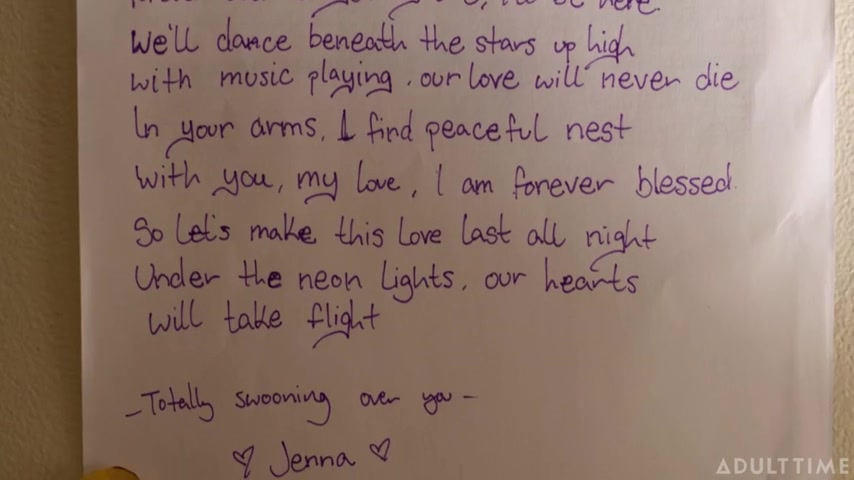 I'll be here.
We'll dance beneath the stars up high
with music playing. our love will never die
In your arms, I find peaceful nest
With you, my love, I am forever blessed.
So Let's make this Love last all night
Under the neon lights, our hearts
will take flight
-Totally swooning over you-
♡ Jenna ♡
ADULTTIME